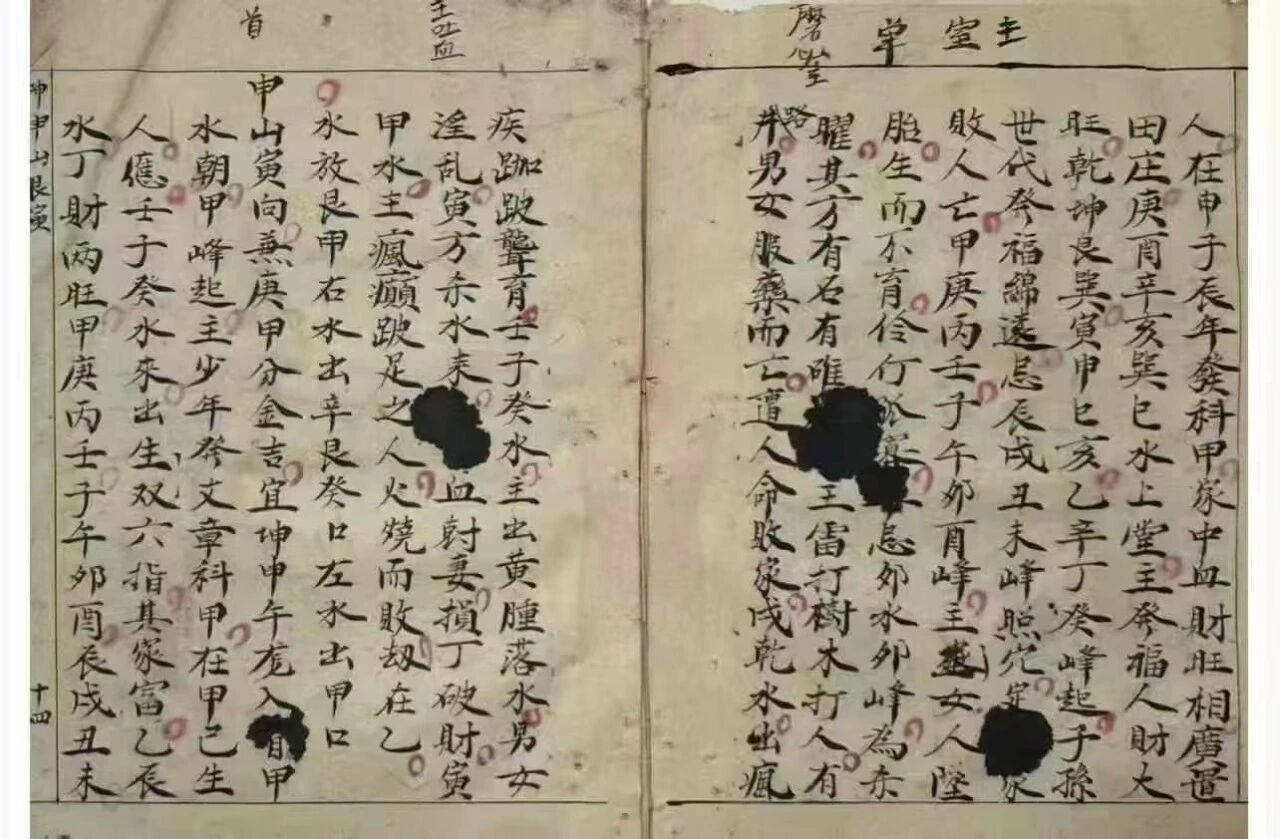 主
室
牟
磨心
人在申子辰年發科甲家中血財旺相廣置
田庄庚酉辛亥巽巳水上堂主癸福人財大
旺乾坤艮巽寅申巳亥乙辛丁癸峰起子孫
世代癸福綿遠忌辰戌丑未峰照穴 家
敗人亡甲庚丙壬子午夘酉峰主 女人墜
胎生而不育伶仃孤寡 忌夘水夘峰為杀
曜其方有石有唯 王雷打樹木打人有
路
男女服藥而亡遭人命敗家戌乾水出瘋
主吐血
首
疾跏跛聾育壬子癸水主出黄腫落水男女
淫乱寅方杀水来 血尅妻損丁破財寅
甲水主瘋癲跛足之人火燒而敗劫在乙
水放艮甲石水出辛艮癸口左水出甲口
申山寅向兼庚甲分金吉宜坤申午龙入首甲
水朝甲峰起主少年癸文章科甲在甲己生
人應壬子癸水來出生双六指其家富乙辰
水丁財两旺甲庚丙壬子午夘酉辰戌丑未
坤申山艮寅
十四